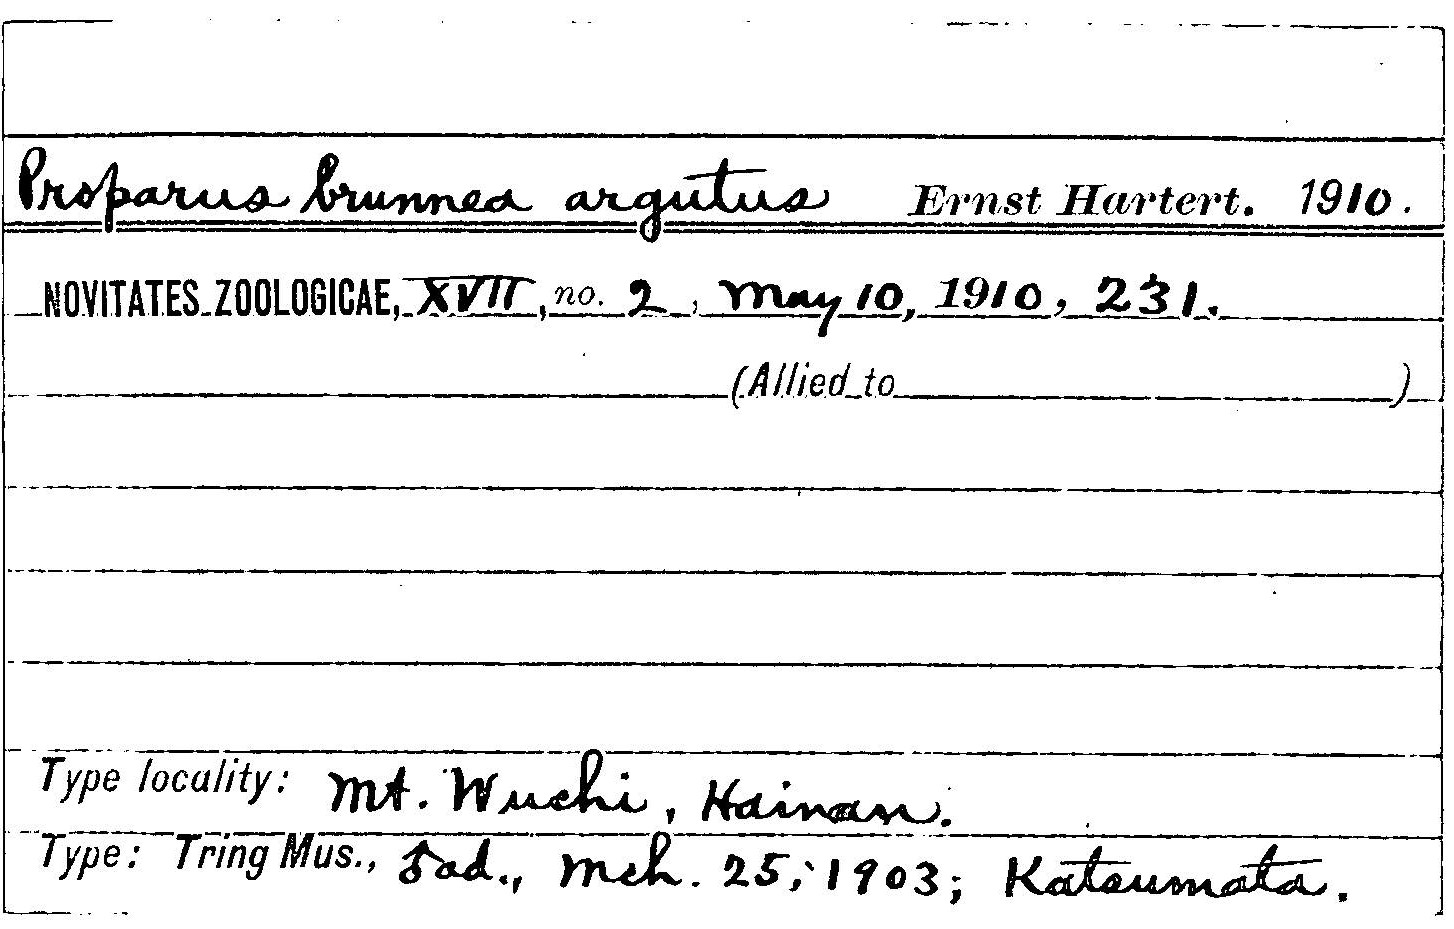 Proparus brunnea argutus Ernst Hartert. 1910.
NOVITATES ZOOLOGICAE, XVII, no. 2, May 10, 1910, 231.
(Allied to )
Type locality: Mt. Wuchi, Hainan.
Type: Tring Mus., ad., Mch. 25, 1903; Katsumata.